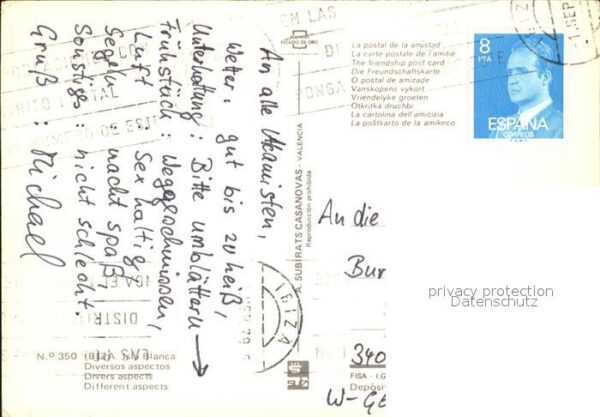 An alle Urbanisten,
Wetter: gut bis zu heiß,
Unterhaltung: Bitte umblättern →
Frühstück: Weggeschmissen,
Luft : Seihaltig
Segeln : macht spaß
Sonstiges : nicht schlecht.
Gruß : Michael
N.º 350 IBIZA. Isla Blanca
Diversos aspectos
Divers aspects
Different aspects
ESCUDO DE ORO
A. SUBIRATS CASANOVAS - VALENCIA
Reproducción prohibida
La postal de la amistad
La carte postale de l'amitié
The friendship post card
Die Freundschaftskarte
O postal de amizade
Vanskopens vykort
Vriendelyke groeten
Otkritka druchbi
La cartolina dell'amicizia
La poŝtkarto de la amikeco
8
PTA
ESPAÑA
CORREOS
IBIZA
1 SEP
EN LAS
DISTRIT
An die
Bur
privacy protection
Datenschutz
340
W-GE
FISA - I.G
Depósi